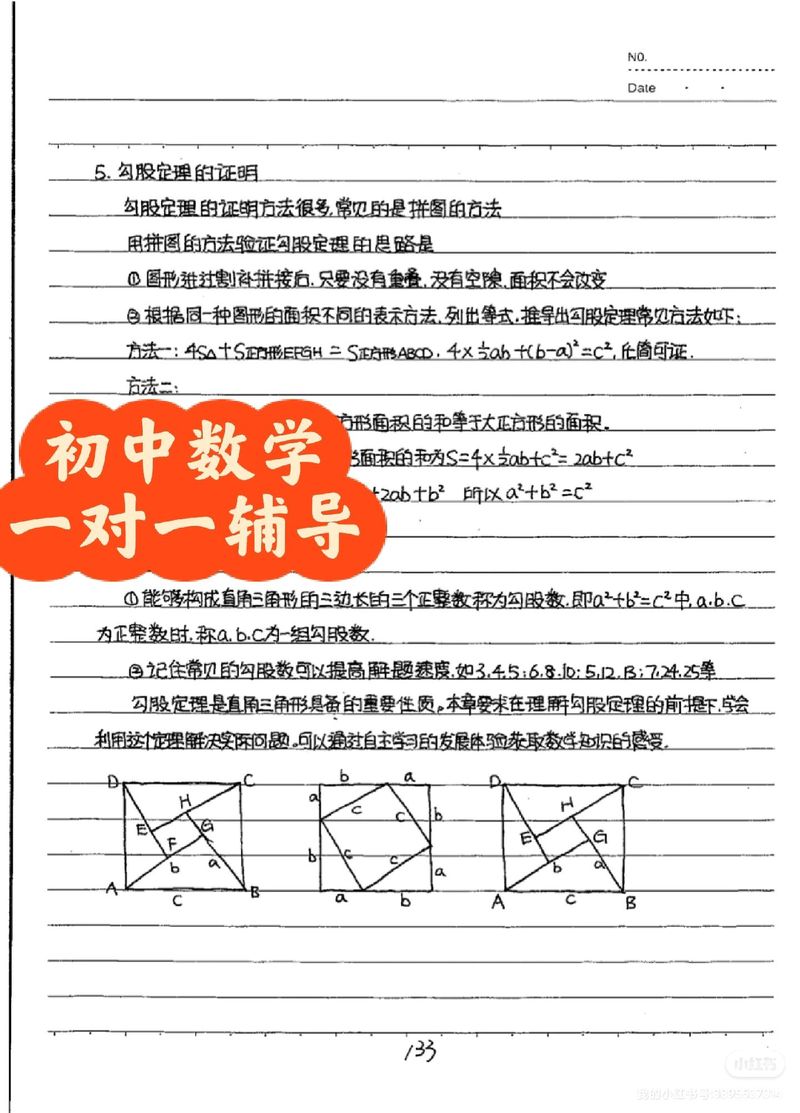 NO.
Date
5. 勾股定理的证明
勾股定理的证明方法很多,常见的是拼图的方法
用拼图的方法验证勾股定理的思路是
①图形进过割补拼接后,只要没有重叠,没有空隙,面积不会改变
②根据同一种图形的面积不同的表示方法,列出等式,推导出勾股定理常见方法如下:
方法一:4S△+S正方形EFGH=S正方形ABCD,4×½ab+(b-a)²=c²,化简可证.
方法二:
方形面积的和等于大正方形的面积。
形面积的和为S=4×½ab+c²=2ab+c²
+2ab+b² 所以a²+b²=c²
初中数学
一对一辅导
①能够构成直角三角形的三边长的三个正整数称为勾股数,即a²+b²=c²中,a.b.c
为正整数时,称a.b.c为一组勾股数.
②记住常见的勾股数可以提高解题速度,如3.4.5;6.8.10;5.12.13;7.24.25等
勾股定理是直角三角形具备的重要性质。本章要求在理解勾股定理的前提下,学会
利用这个定理解决实际问题。可以通过自主学习的发展体验获取数学知识的感受.
D C H E G F b a A c B
b a a c c b b c c a a b
D C H E G b a A c B
133
小红书